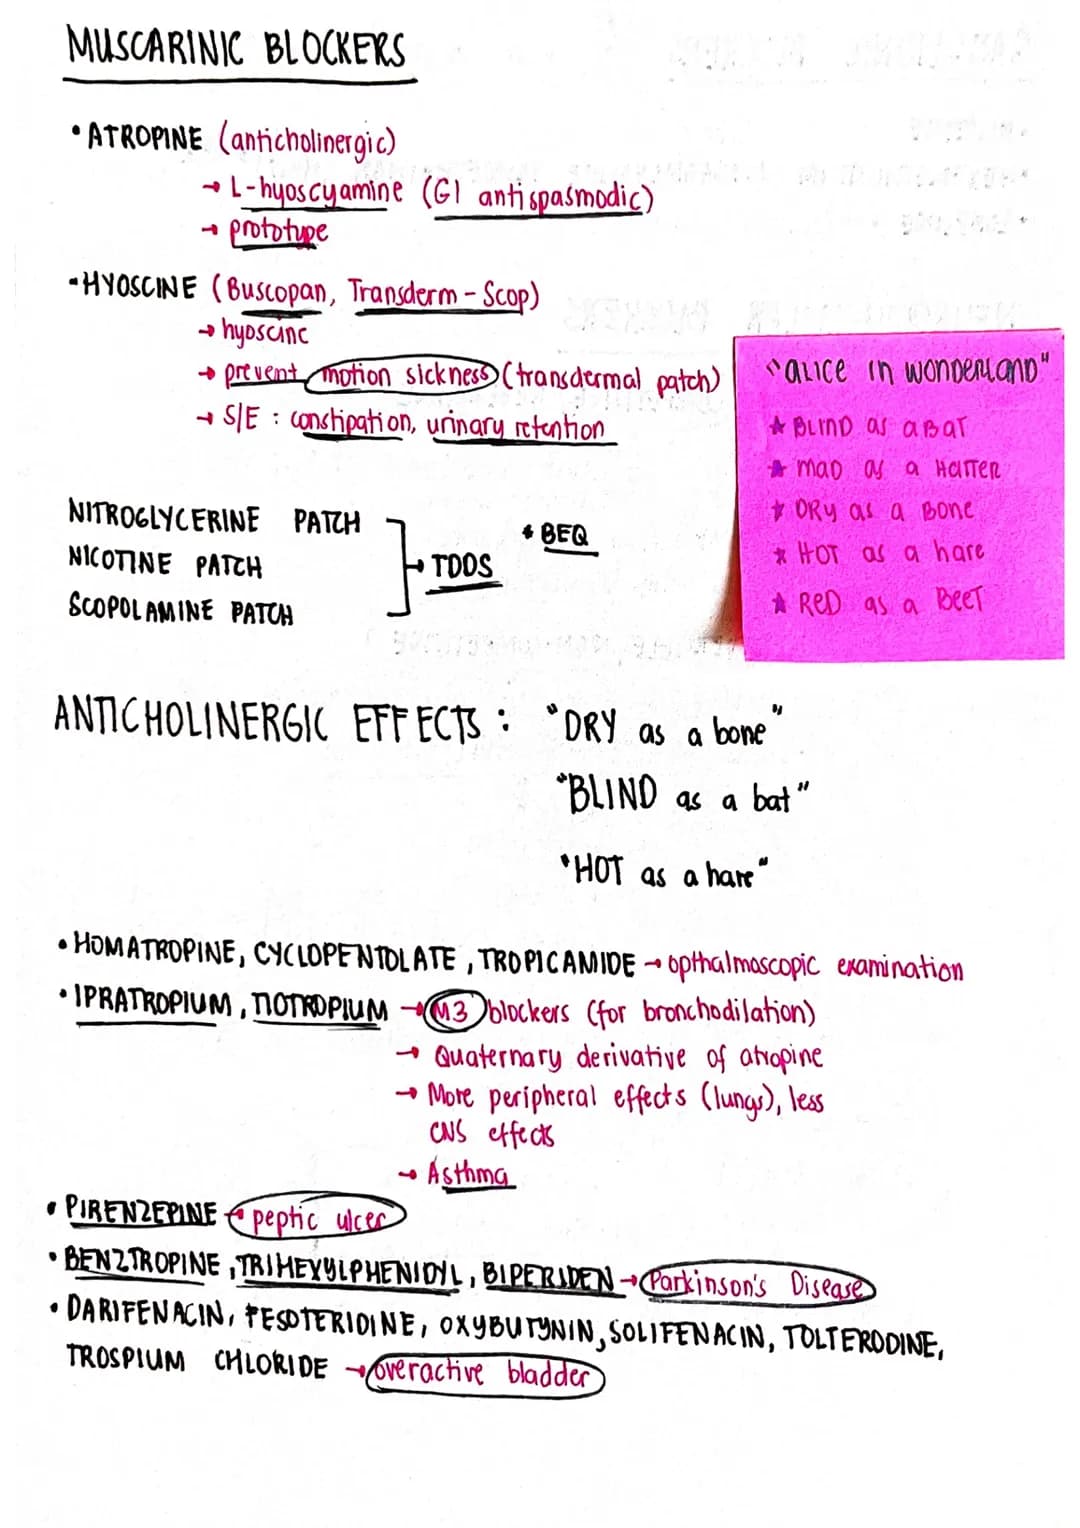 MUSCARINIC BLOCKERS
• ATROPINE (anticholinergic)
→ L-hyoscyamine (GI antispasmodic)
→ prototype
• HYOSCINE (Buscopan, Transderm-Scop)
→ hyoscinc
→ prevent motion sickness (transdermal patch)
→ S/E : constipation, urinary retention
"ALICE in WONDERLAND"
★ BLIND as a BAT
★ MAD as a HATTER
★ DRY as a Bone
★ HOT as a hare
★ RED as a BeeT
NITROGLYCERINE PATCH
NICOTINE PATCH
SCOPOLAMINE PATCH
→ TDDS
* BEQ
ANTICHOLINERGIC EFFECTS : "DRY as a bone"
"BLIND as a bat"
"HOT as a hare"
• HOMATROPINE, CYCLOPENTOLATE, TROPICAMIDE → opthalmoscopic examination
• IPRATROPIUM, TIOTROPIUM → M3 blockers (for bronchodilation)
→ Quaternary derivative of atropine
→ More peripheral effects (lungs), less
CNS effects
→ Asthma
• PIRENZEPINE → peptic ulcer
• BENZTROPINE, TRIHEXYLPHENIDYL, BIPERIDEN → Parkinson's Disease
• DARIFENACIN, FESOTERIDINE, OXYBUTYNIN, SOLIFENACIN, TOLTERODINE,
TROSPIUM CHLORIDE → overactive bladder